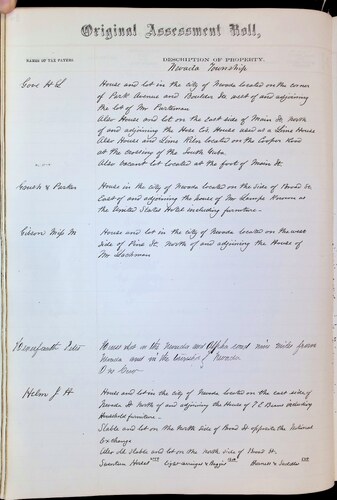 Original Assessment Roll,
NAMES OF TAX PAYERS
DESCRIPTION OF PROPERTY,
Nevada Township
Gove H L
House and lot in the city of Nevada located on the corner
of Park Avenue and Boulder St west of and adjoining
the lot of Mr
Also House and lot on the east side of Main St, north
of and adjoining the Hose Co's House used as a Lime House
Also House and Lime Kiln located on the
at the crossing of the South
Also vacant lot located at the foot of Main St.
& Parker
House in the city of Nevada located on the side of Broad St
East of and adjoining the house of Mr Known as
the United States Hotel including furniture -
Gibson Miss M
House and lot in the city of Nevada located on the west
side of Pine St. North of and adjoining the House of
Mr
Peter
House and lot on the Nevada and Alpha road nine miles from
Nevada and in the Township of Nevada
One
Helm J H
House and lot in the city of Nevada located on the east side of
Nevada St North of and adjoining the House of including
Household furniture -
Stable and lot on the North side of Broad St opposite the National
Exchange
Also old stable and lot on the north side of Broad St.
Seventeen Horses Eight carriages & Buggies Harness & Saddles